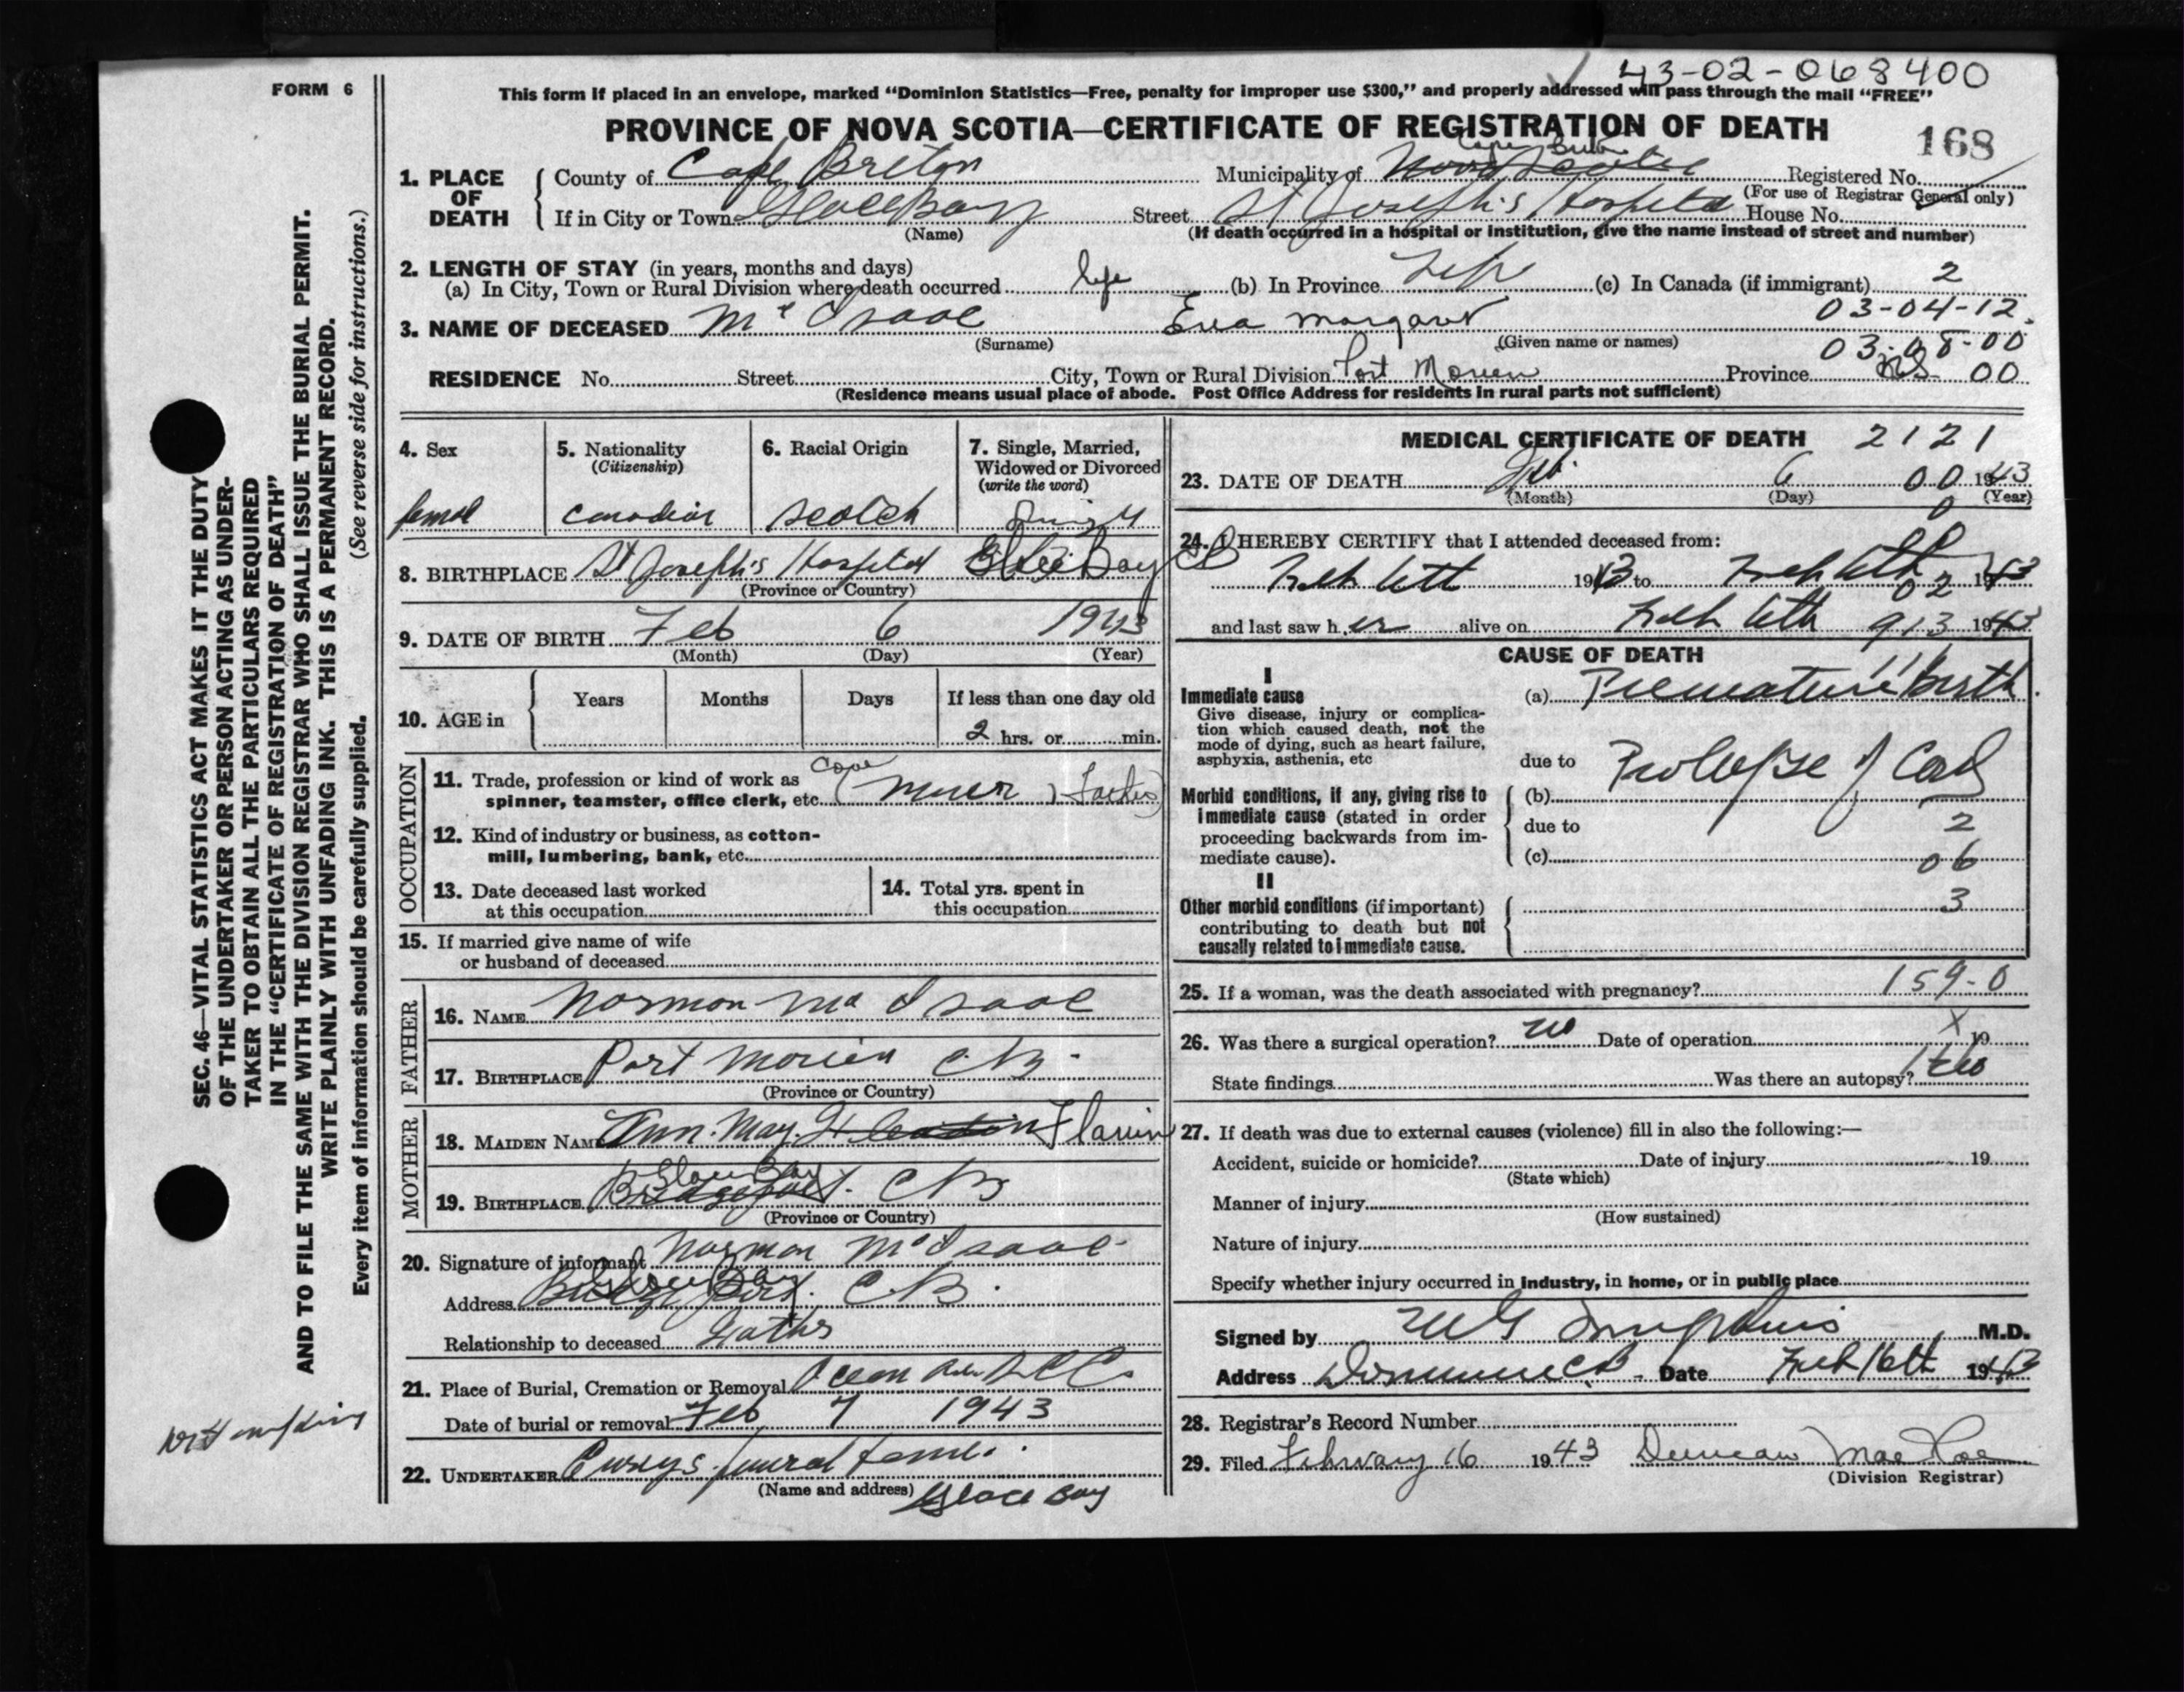 43-02-068400
FORM 6
This form if placed in an envelope, marked “Dominion Statistics—Free, penalty for improper use $300,” and properly addressed will pass through the mail “FREE”
PROVINCE OF NOVA SCOTIA—CERTIFICATE OF REGISTRATION OF DEATH
168
1. PLACE OF DEATH
County of Cape Breton Municipality of Nova Scotia Cape Breton Registered No.
(For use of Registrar General only)
If in City or Town Glace Bay Street St Joseph's Hospital House No.
(Name) (If death occurred in a hospital or institution, give the name instead of street and number)
2. LENGTH OF STAY (in years, months and days)
(a) In City, Town or Rural Division where death occurred life (b) In Province Life (c) In Canada (if immigrant) 2
03-04-12
3. NAME OF DECEASED Mc Isaac Eva Margaret
(Surname) (Given name or names)
03-08-00
RESIDENCE No. Street City, Town or Rural Division Port Morien Province NS 00
(Residence means usual place of abode. Post Office Address for residents in rural parts not sufficient)
4. Sex
femal
5. Nationality
(Citizenship)
canadian
6. Racial Origin
scotch
7. Single, Married,
Widowed or Divorced
(write the word)
Single
8. BIRTHPLACE St Joseph's Hospital Glace Bay CB
(Province or Country)
9. DATE OF BIRTH Feb 6 1943
(Month) (Day) (Year)
10. AGE in
Years Months Days If less than one day old
2 hrs. or min.
OCCUPATION
11. Trade, profession or kind of work as
spinner, teamster, office clerk, etc. (miner) Father
12. Kind of industry or business, as cotton-
mill, lumbering, bank, etc.
13. Date deceased last worked
at this occupation
14. Total yrs. spent in
this occupation
15. If married give name of wife
or husband of deceased
FATHER
16. NAME Norman Mc Isaac
17. BIRTHPLACE Port Morien C.B.
(Province or Country)
MOTHER
18. MAIDEN NAME Ann. May. Flavin
19. BIRTHPLACE Bridgeport. Glace Bay CB
(Province or Country)
20. Signature of informant Norman McIsaac
Address Bridgeport. Glace Bay C.B.
Relationship to deceased Father
21. Place of Burial, Cremation or Removal
Date of burial or removal Feb 7 1943
22. UNDERTAKER Currys funeral home.
(Name and address) Glace Bay
MEDICAL CERTIFICATE OF DEATH 2121
23. DATE OF DEATH Feb. 6 00 1943
(Month) (Day) (Year)
0
24. I HEREBY CERTIFY that I attended deceased from:
Feb 6th 1943 to Feb 6th 1943
02
and last saw her alive on Feb 6th 1943
913
CAUSE OF DEATH
I
Immediate cause
Give disease, injury or complica-
tion which caused death, not the
mode of dying, such as heart failure,
asphyxia, asthenia, etc
(a) Premature Birth
due to
Morbid conditions, if any, giving rise to
immediate cause (stated in order
proceeding backwards from im-
mediate cause).
(b) Prolapse of Cord
due to
2
(c)
06
II
Other morbid conditions (if important)
contributing to death but not
causally related to immediate cause.
3
25. If a woman, was the death associated with pregnancy? 159-0
26. Was there a surgical operation? no Date of operation X 19
State findings Was there an autopsy? No
27. If death was due to external causes (violence) fill in also the following:—
Accident, suicide or homicide? Date of injury 19
(State which)
Manner of injury
(How sustained)
Nature of injury
Specify whether injury occurred in industry, in home, or in public place
Signed by M.D.
Address Dominion C.B. Date Feb 16th 1943
28. Registrar's Record Number
29. Filed February 16 1943 Duncan MacRae
(Division Registrar)
SEC. 46—VITAL STATISTICS ACT MAKES IT THE DUTY
OF THE UNDERTAKER OR PERSON ACTING AS UNDER-
TAKER TO OBTAIN ALL THE PARTICULARS REQUIRED
IN THE “CERTIFICATE OF REGISTRATION OF DEATH”
AND TO FILE THE SAME WITH THE DIVISION REGISTRAR WHO SHALL ISSUE THE BURIAL PERMIT.
WRITE PLAINLY WITH UNFADING INK. THIS IS A PERMANENT RECORD.
Every item of information should be carefully supplied. (See reverse side for instructions.)